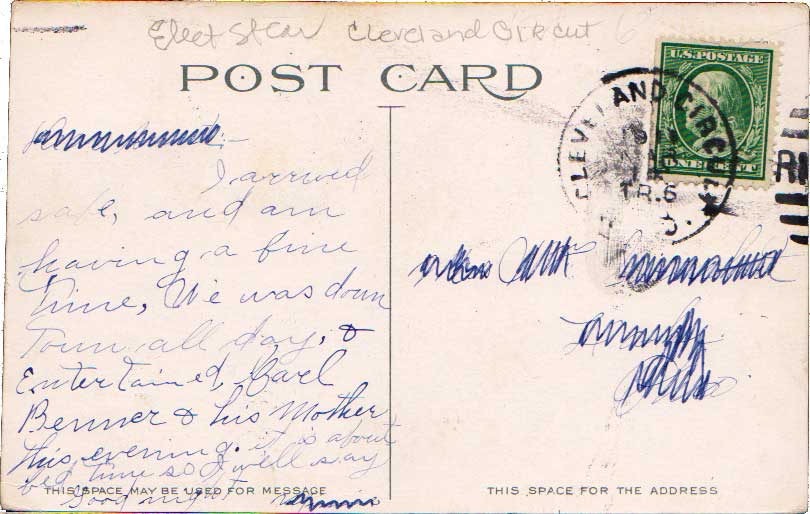 Elect St Car Cleveland Circuit
POST CARD
U.S. POSTAGE
ONE CENT
CLEVELAND CIRCUIT
TR. 6
R.P.O.
I arrived
safe, and am
having a fine
time, We was down
Town all day, &
Entertained, Carl
Benner & his Mother
this evening. it is about
bed time so I will say
Good night
THIS SPACE MAY BE USED FOR MESSAGE
THIS SPACE FOR THE ADDRESS